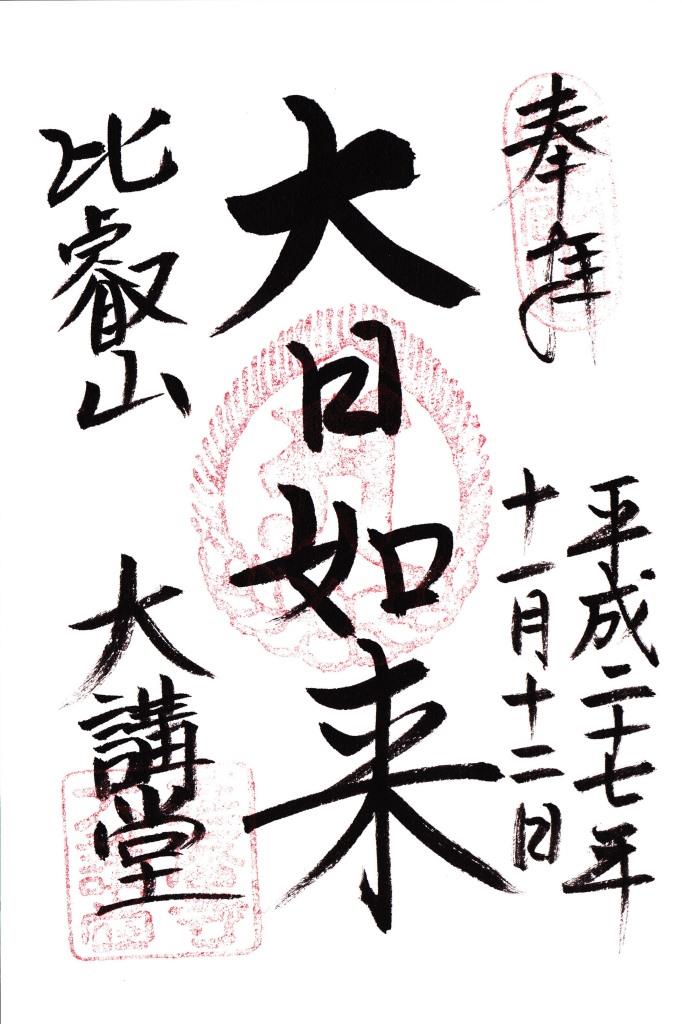 奉拝
平成二十七年
十一月十二日
大日如来
比叡山
大講堂